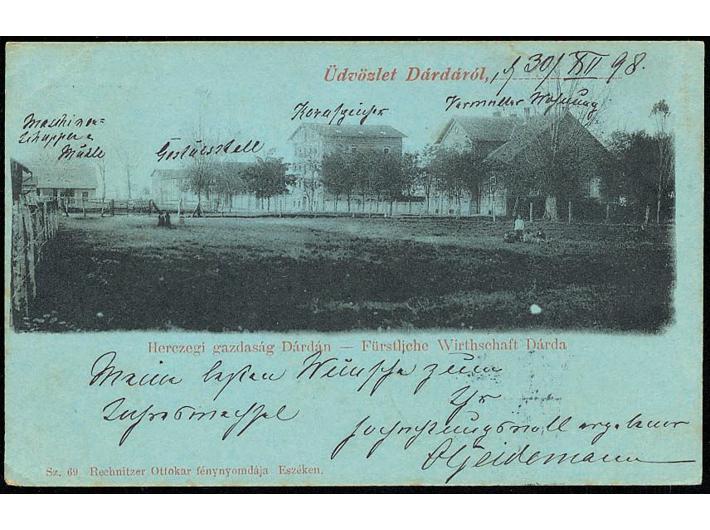 Üdvözlet Dárdáról, 30/XII 98.
Maschinen=
Schuppen
Mühle
Gestütsstall
Kornspeicher
Verwalter Wohnung
Herczegi gazdaság Dárdán — Fürstliche Wirthschaft Dárda
Meine besten Wünsche zum
Jahreswechsel
Ihr
hochachtungsvoll ergebener
Heidemann
Sz. 69. Rechnitzer Ottokar fénynyomdája Eszéken.